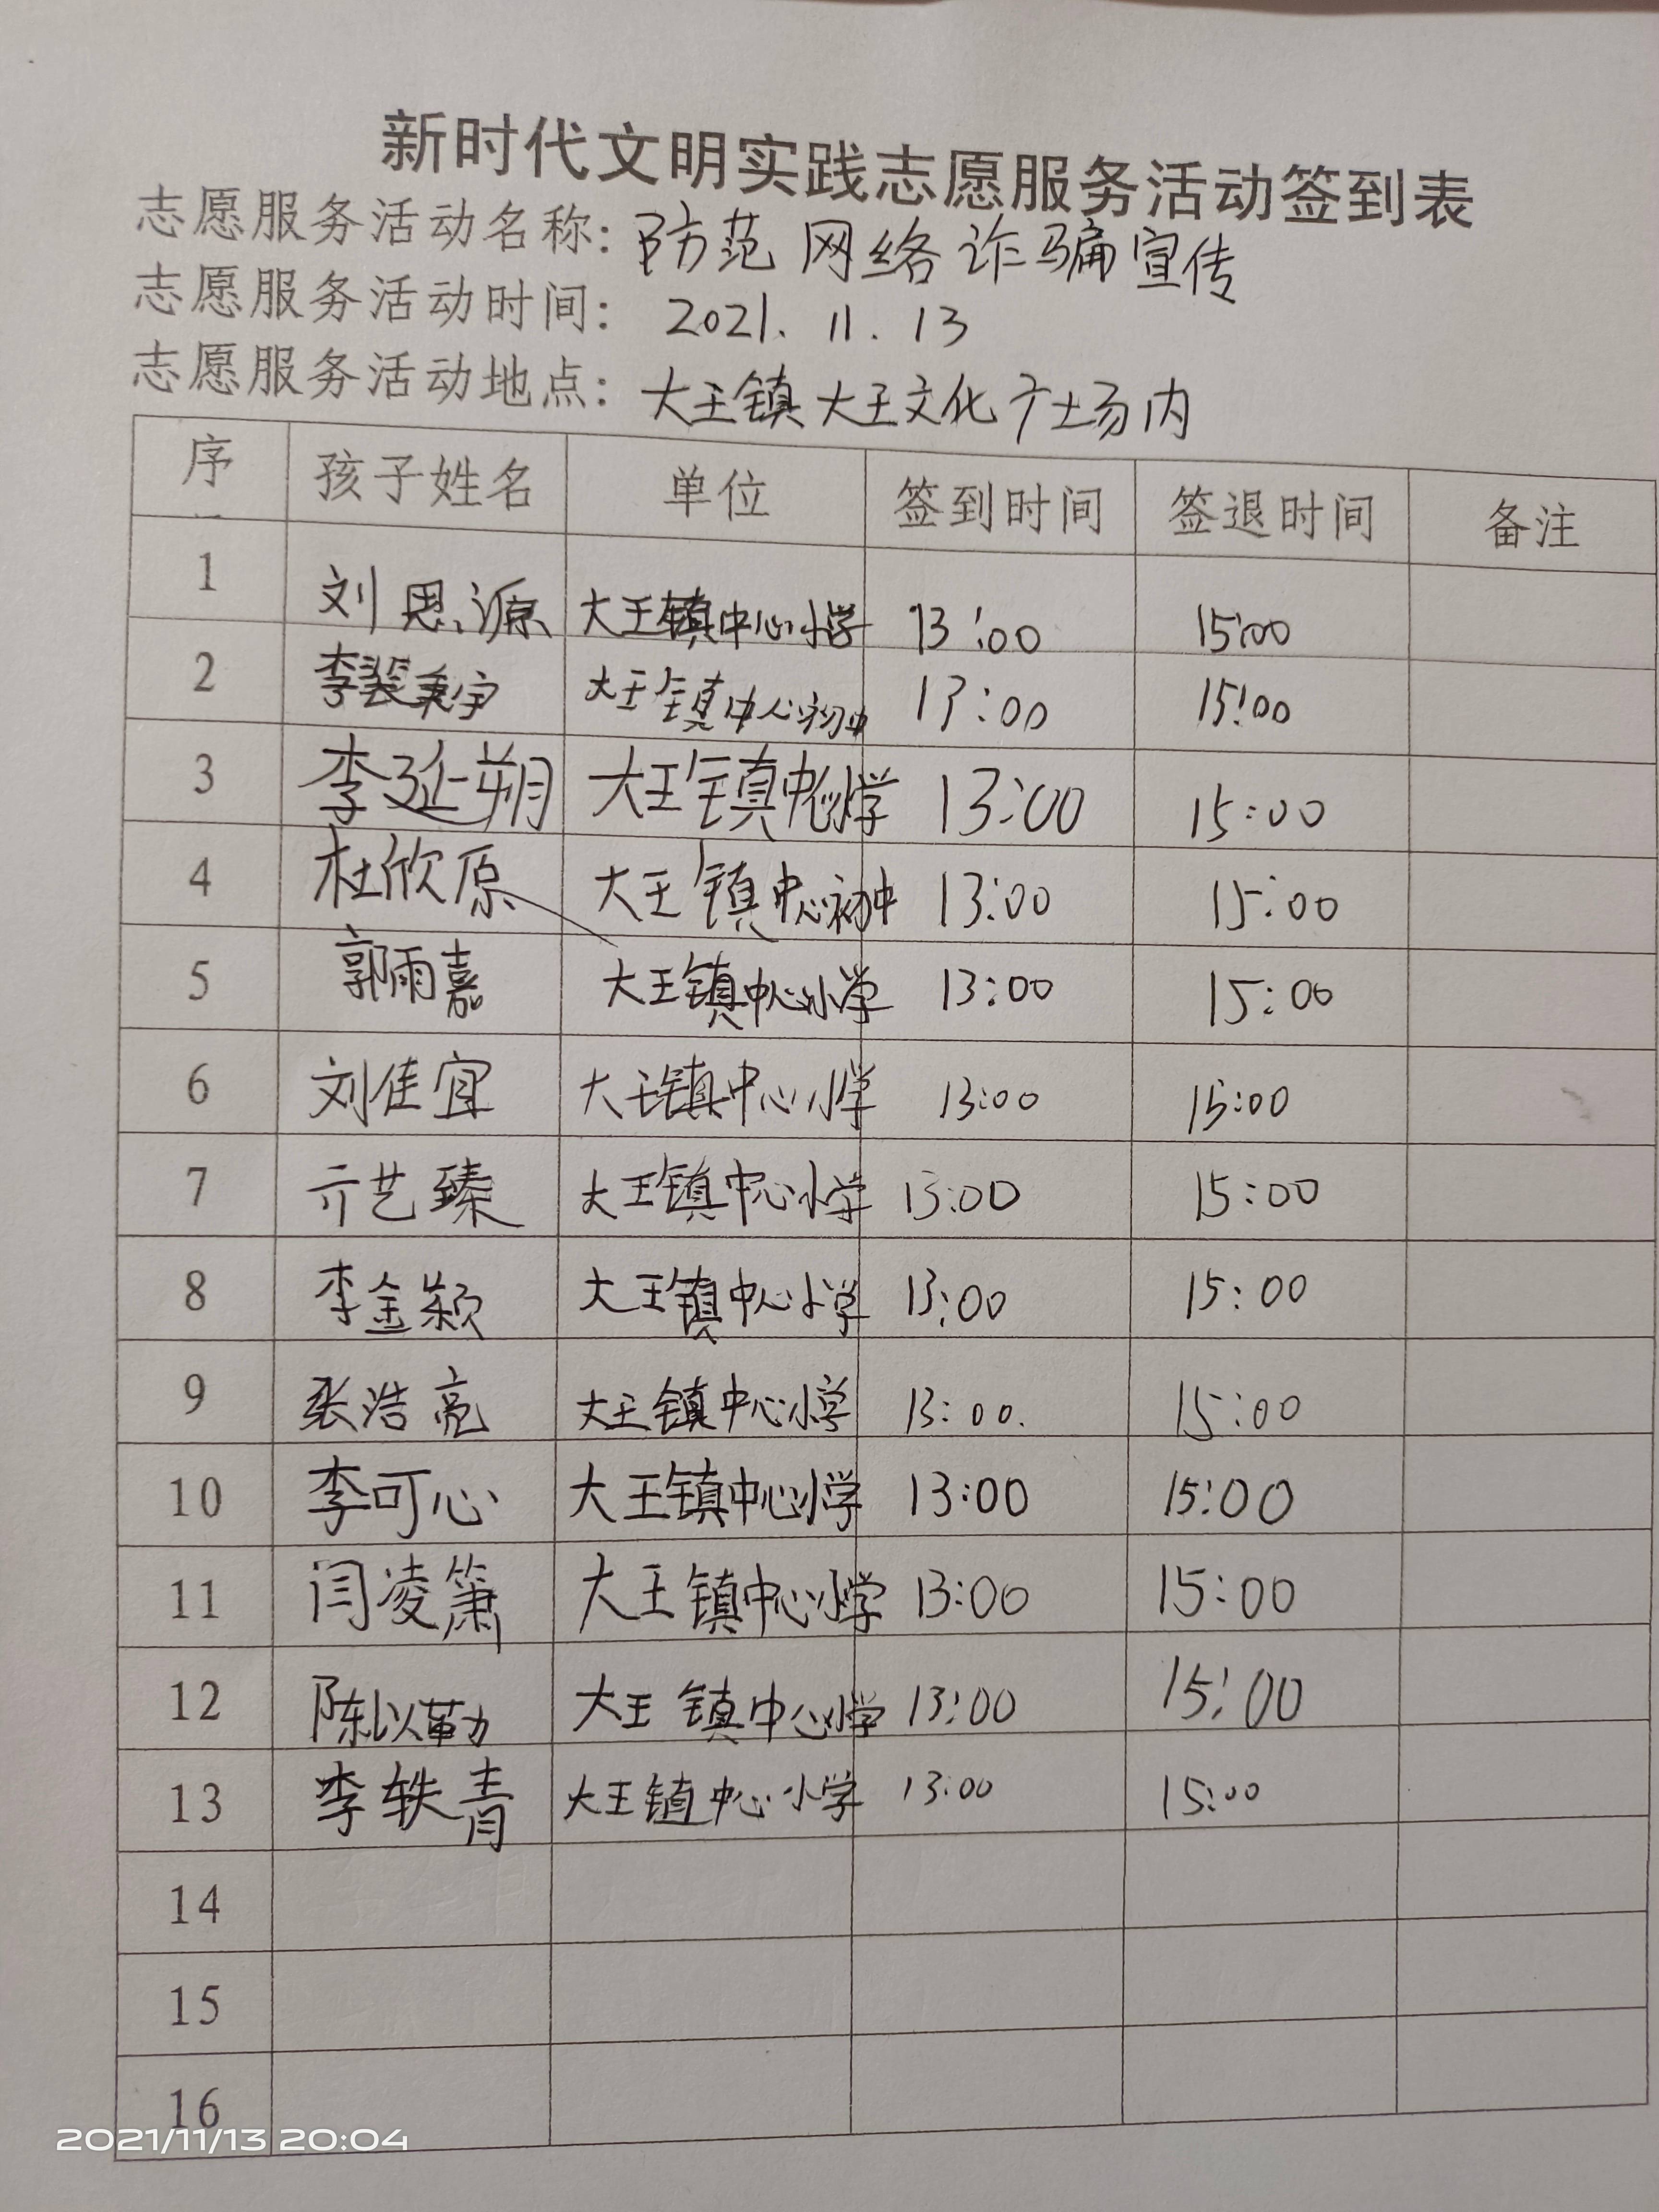 新时代文明实践志愿服务活动签到表
志愿服务活动名称：防范网络诈骗宣传
志愿服务活动时间：2021.11.13
志愿服务活动地点：大王镇大王文化广场内
序 孩子姓名 单位 签到时间 签退时间 备注
1 刘思源 大王镇中心小学 13:00 15:00
2 李裴秉宇 大王镇中心初中 13:00 15:00
3 李延朔 大王镇中心小学 13:00 15:00
4 杜欣原 大王镇中心初中 13:00 15:00
5 郭雨嘉 大王镇中心小学 13:00 15:00
6 刘佳宜 大王镇中心小学 13:00 15:00
7 亓艺臻 大王镇中心小学 13:00 15:00
8 李金颖 大王镇中心小学 13:00 15:00
9 张浩亮 大王镇中心小学 13:00. 15:00
10 李可心 大王镇中心小学 13:00 15:00
11 闫凌箫 大王镇中心小学 13:00 15:00
12 陈以勒 大王镇中心小学 13:00 15:00
13 李轶青 大王镇中心小学 13:00 15:00
14
15
16
2021/11/13 20:04